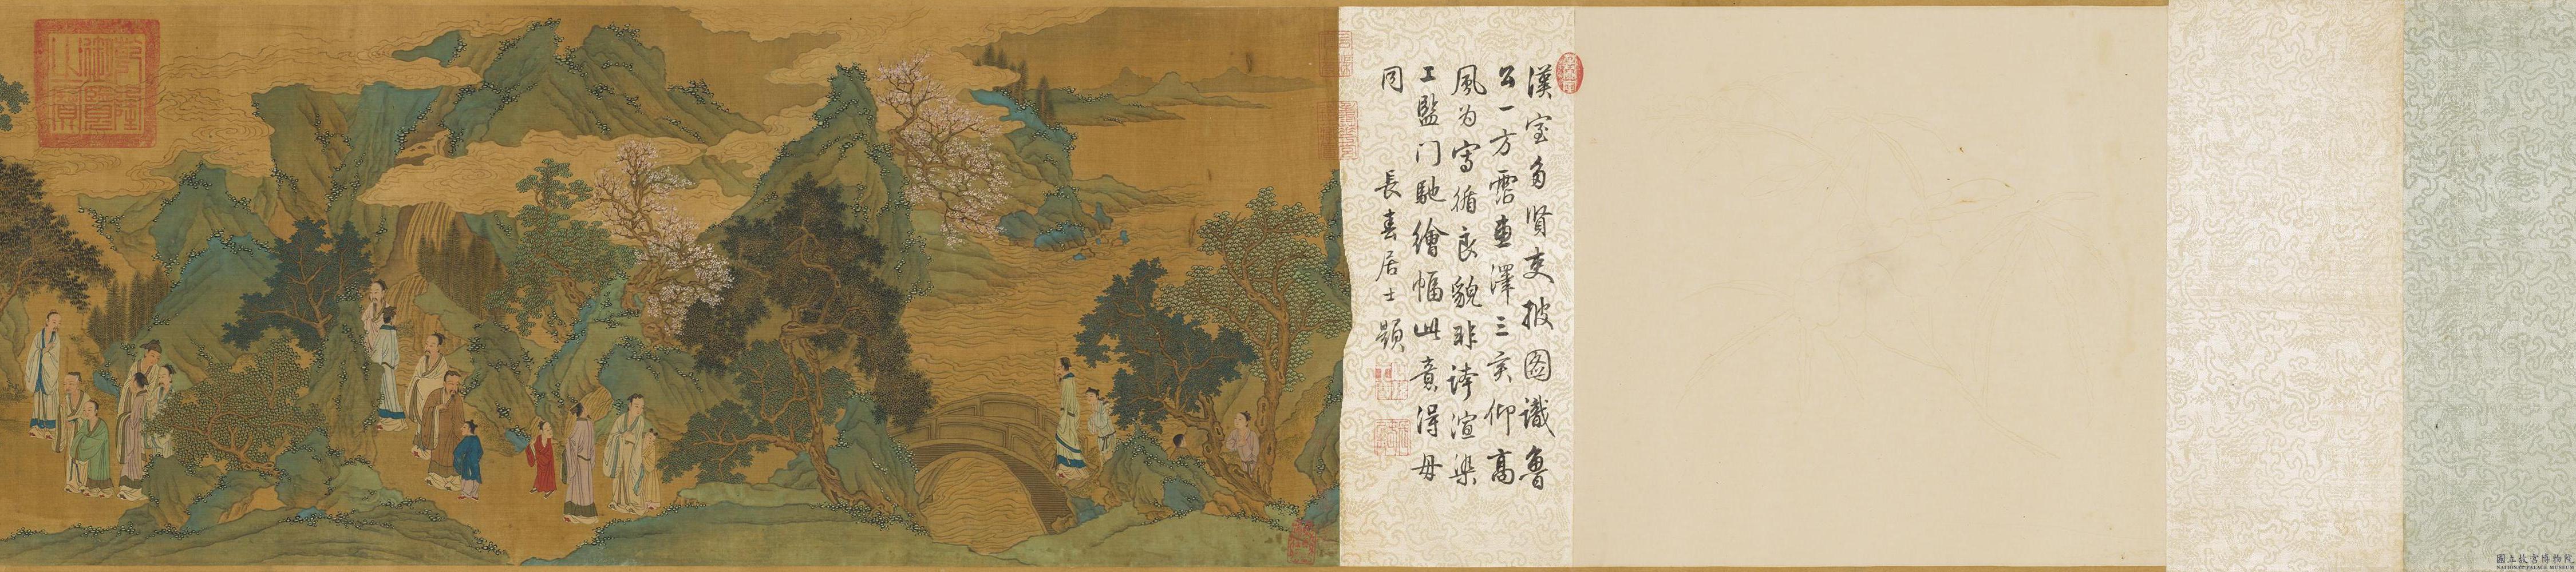 漢室多賢吏披圖識魯
公一方霑惠澤三亥仰高
風为寫循良貌非誇渲染
工監门馳繪幅此意得毋
同
長春居士題
乾隆御覽之寶
國立故宮博物院
NATIONAL PALACE MUSEUM